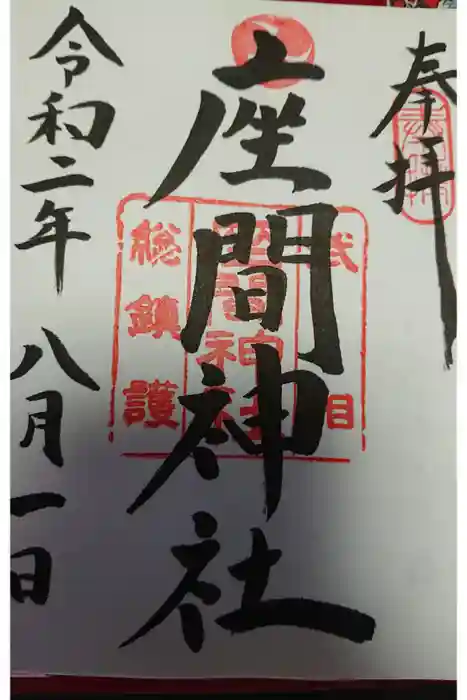 奉拝
座間神社
武 相 総鎮護
座間神社
令和二年 八月一日